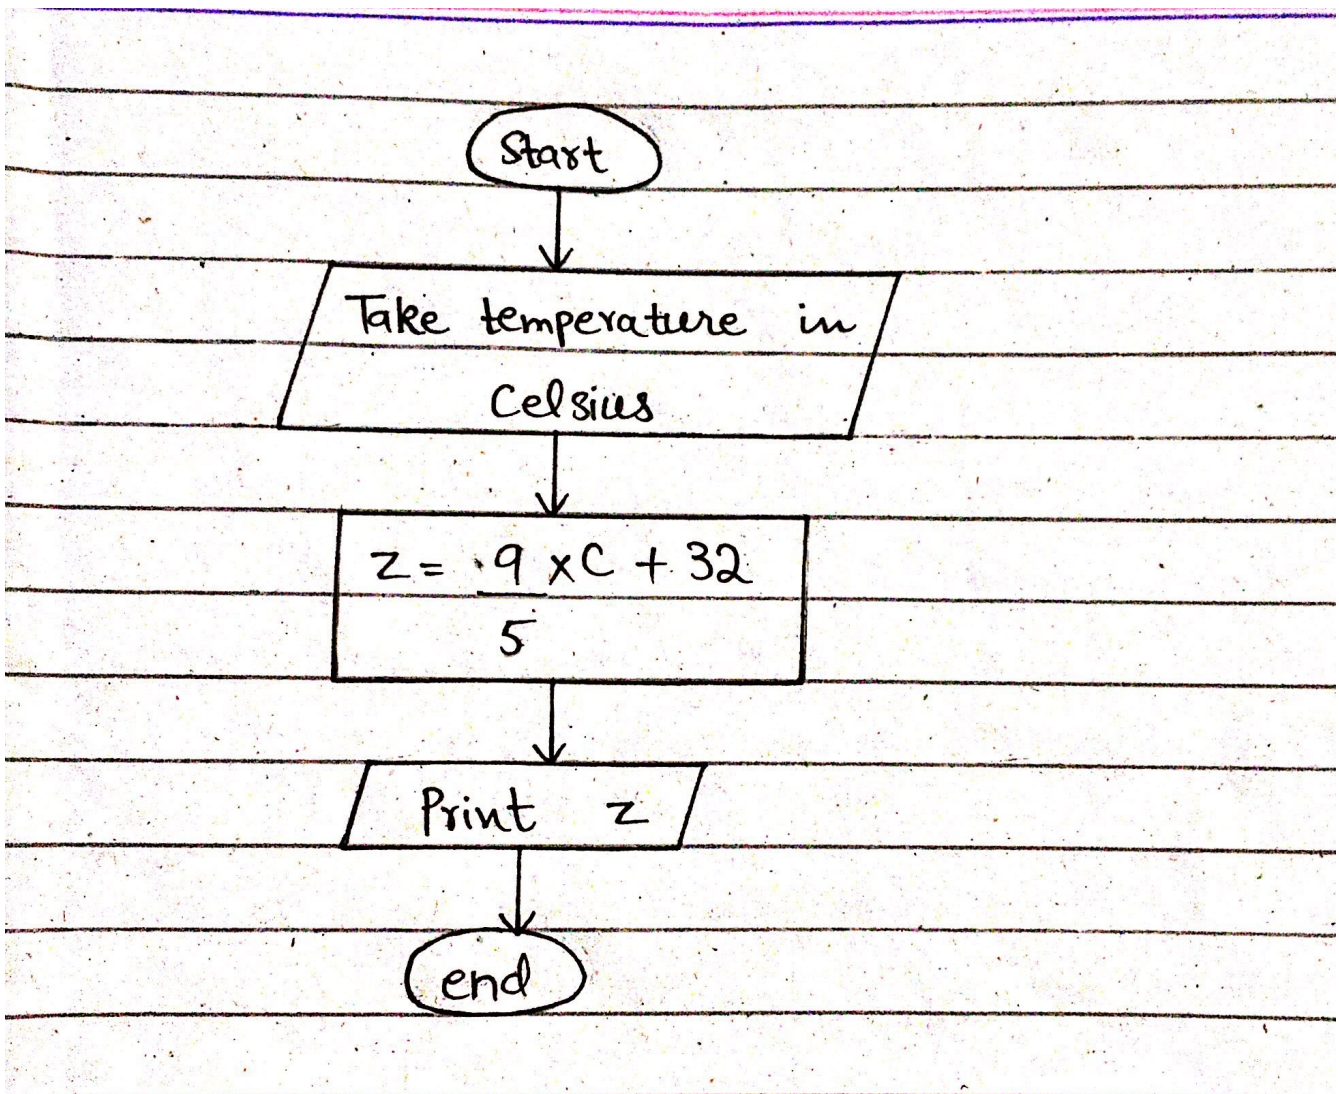 Start
Take temperature in
Celsius
z = 9 x C + 32
5
Print z
end